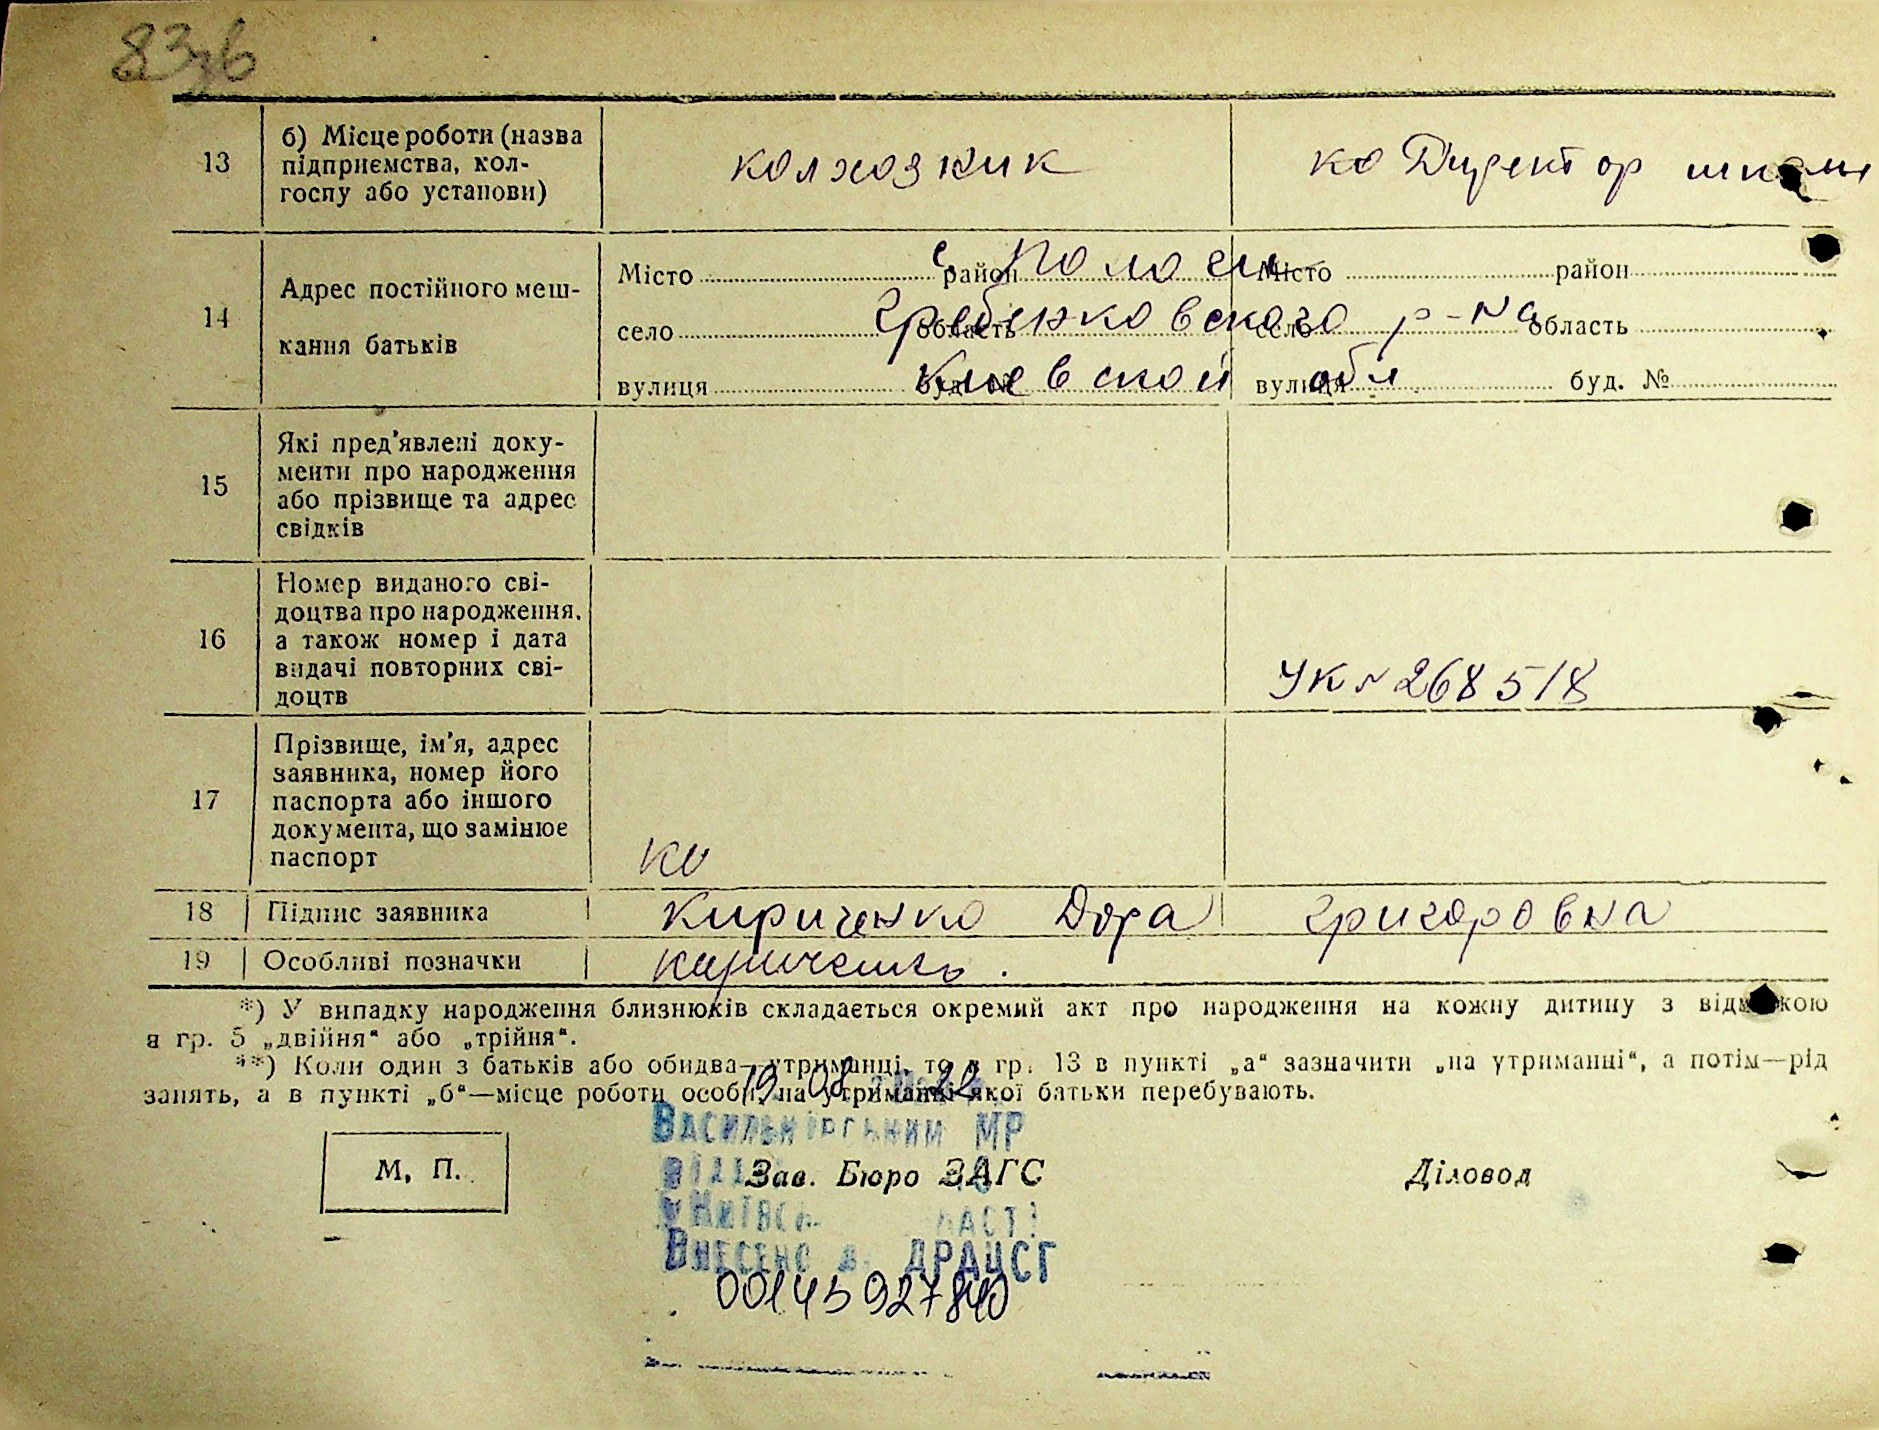 83зв
13
б) Місце роботи (назва
підприємства, кол-
госпу або установи)
колхозник
ко Директор школи
14
Адрес постійного меш-
кання батьків
Місто район Місто район
с. Пологи
село область село область
Гребенковского р-на
вулиця буд. № вулиця буд. №
Киевской обл
15
Які пред'явлені доку-
менти про народження
або прізвище та адрес
свідків
16
Номер виданого сві-
доцтва про народження,
а також номер і дата
видачі повторних сві-
доцтв
УК № 268518
17
Прізвище, ім'я, адрес
заявника, номер його
паспорта або іншого
документа, що замінює
паспорт
ко
18 Підпис заявника Кириченко Дора Григоровна
19 Особливі позначки Кириченко.
*) У випадку народження близнюків складається окремий акт про народження на кожну дитину з відміткою
в гр. 5 „двійня“ або „трійня“.
**) Коли один з батьків або обидва—утриманці, то у гр. 13 в пункті „а“ зазначити „на утриманні“, а потім—рід
занять, а в пункті „б“—місце роботи особи, на утриманні якої батьки перебувають.
Васильківським МР
М. П.
Зав. Бюро ЗАГС
Діловод
Внесено в ДРАЦСГ
00145927840